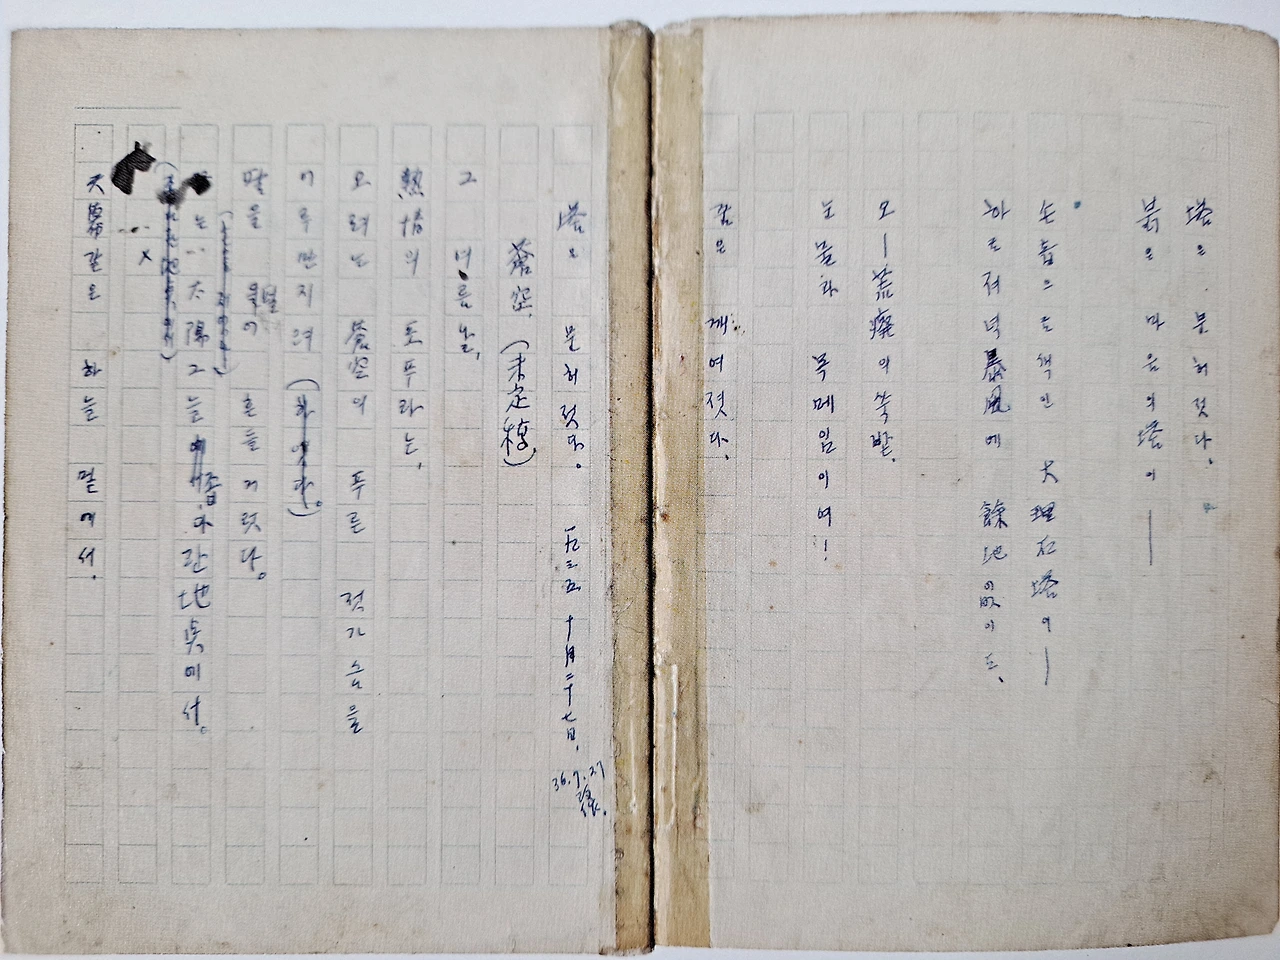 塔은 문허젓다.
붉은 마음의塔이 ——
손톱으로색인 大理石塔이—
하로저녁暴風에 餘地없이도、
오—荒癈의쑥밭,
눈물과 목메임이여!
꿈은 깨여젓다.
塔은 문허젓다。 一九三五、十月二十七日、
36.7.27
蒼空、(未定稿)
그 여름날、
熱情의 포푸라는、
오려는 蒼空의 푸른 젓가슴을
어루만지려 (하엿다。)
팔을 흔들거렷다。
는太陽그늘 좁다란地点에서。
×
天幕같은 하늘 밑에서、